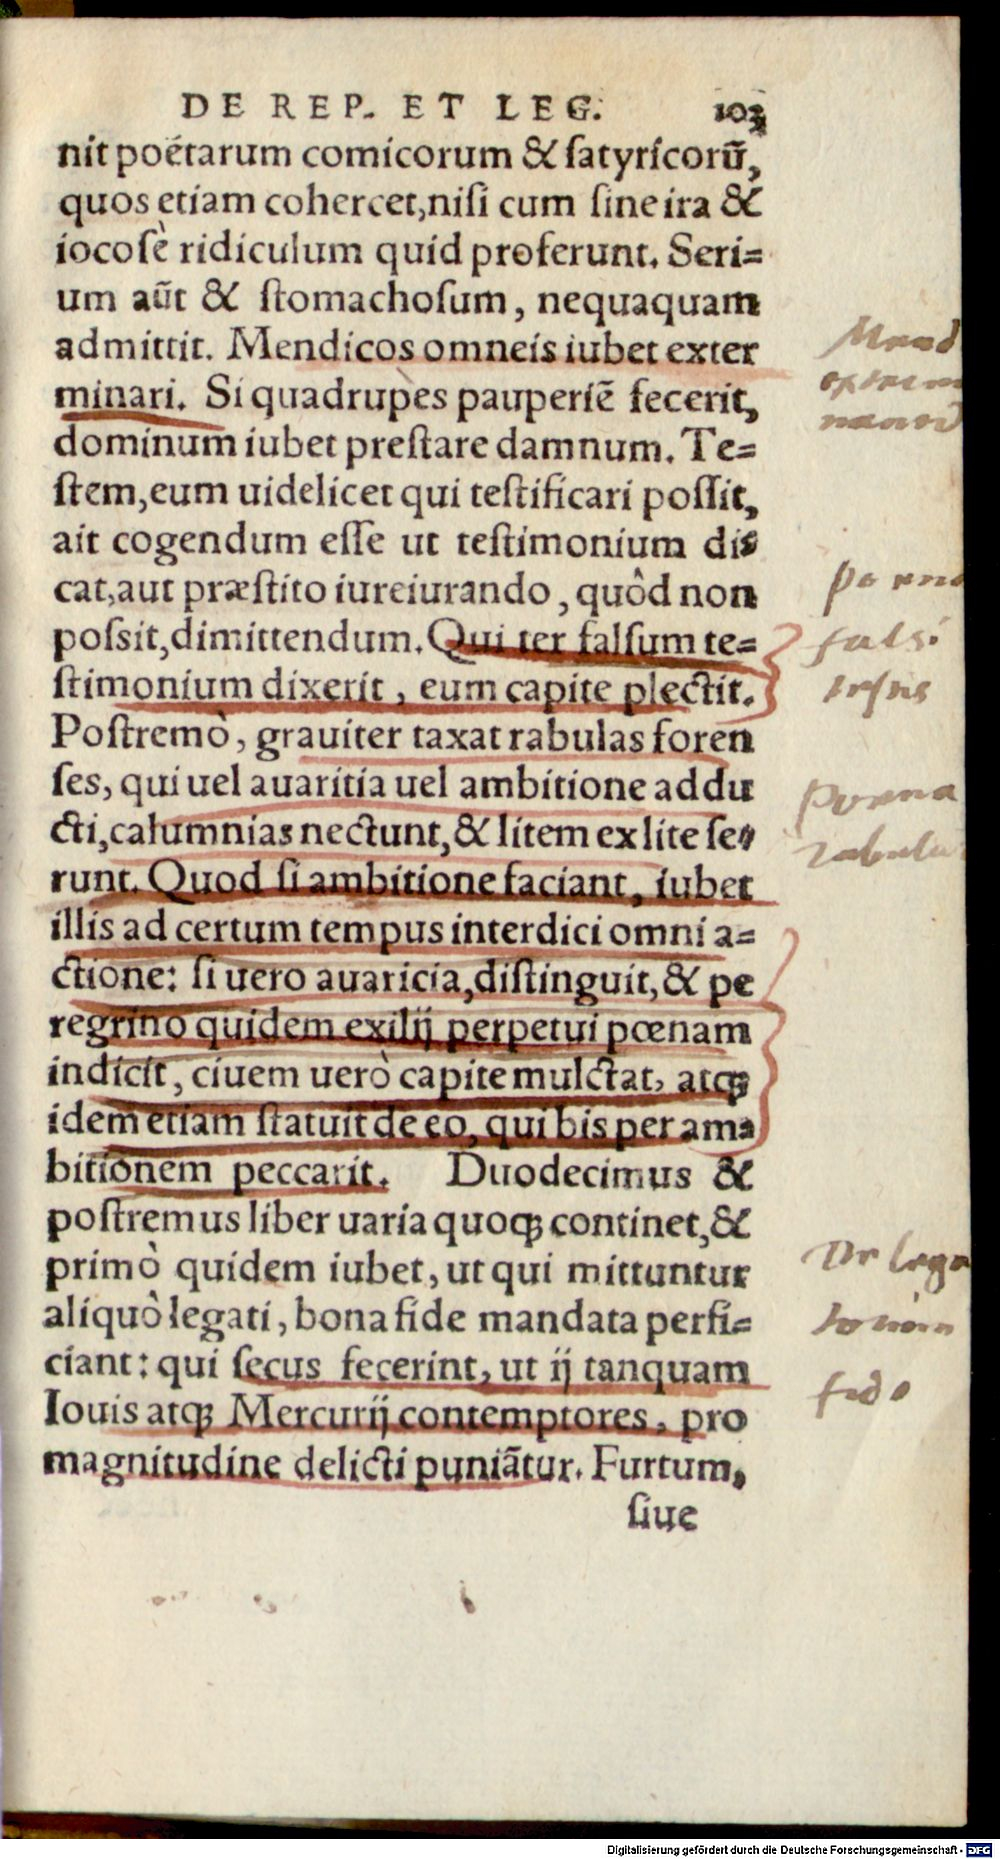 DE REP. ET LEG. 103
nit poëtarum comicorum & ſatyricorũ,
quos etiam cohercet, niſi cum ſine ira &
iocoſè ridiculum quid proferunt. Seri=
um aūt & ſtomachoſum, nequaquam
admittit. Mendicos omneis iubet exter
minari. Si quadrupes pauperiẽ fecerit,
dominum iubet preſtare damnum. Te=
ſtem, eum uidelicet qui teſtificari poſſit,
ait cogendum eſſe ut teſtimonium di=
cat, aut præſtito iureiurando, quòd non
poſsit, dimittendum. Qui ter falſum te=
ſtimonium dixerit, eum capite plectit.
Poſtremò, grauiter taxat rabulas foren
ſes, qui uel auaritia uel ambitione addu
cti, calumnias nectunt, & litem ex lite ſe=
runt. Quod ſi ambitione faciant, iubet
illis ad certum tempus interdici omni a=
ctione: ſi uero auaricia, diſtinguit, & pe
regrino quidem exilij perpetui pœnam
indicit, ciuem uerò capite mulctat, atqꝫ
idem etiam ſtatuit de eo, qui bis per am=
bitionem peccarit. Duodecimus &
poſtremus liber uaria quoqꝫ continet, &
primò quidem iubet, ut qui mittuntur
aliquò legati, bona fide mandata perfi=
ciant: qui ſecus fecerint, ut ij tanquam
Iouis atqꝫ Mercurij contemptores, pro
magnitudine delicti puniãtur. Furtum,
ſiue
Mend
poena
falsi
testis
poena
rabula
De lega
fide
Digitalisierung gefördert durch die Deutsche Forschungsgemeinschaft - DFG